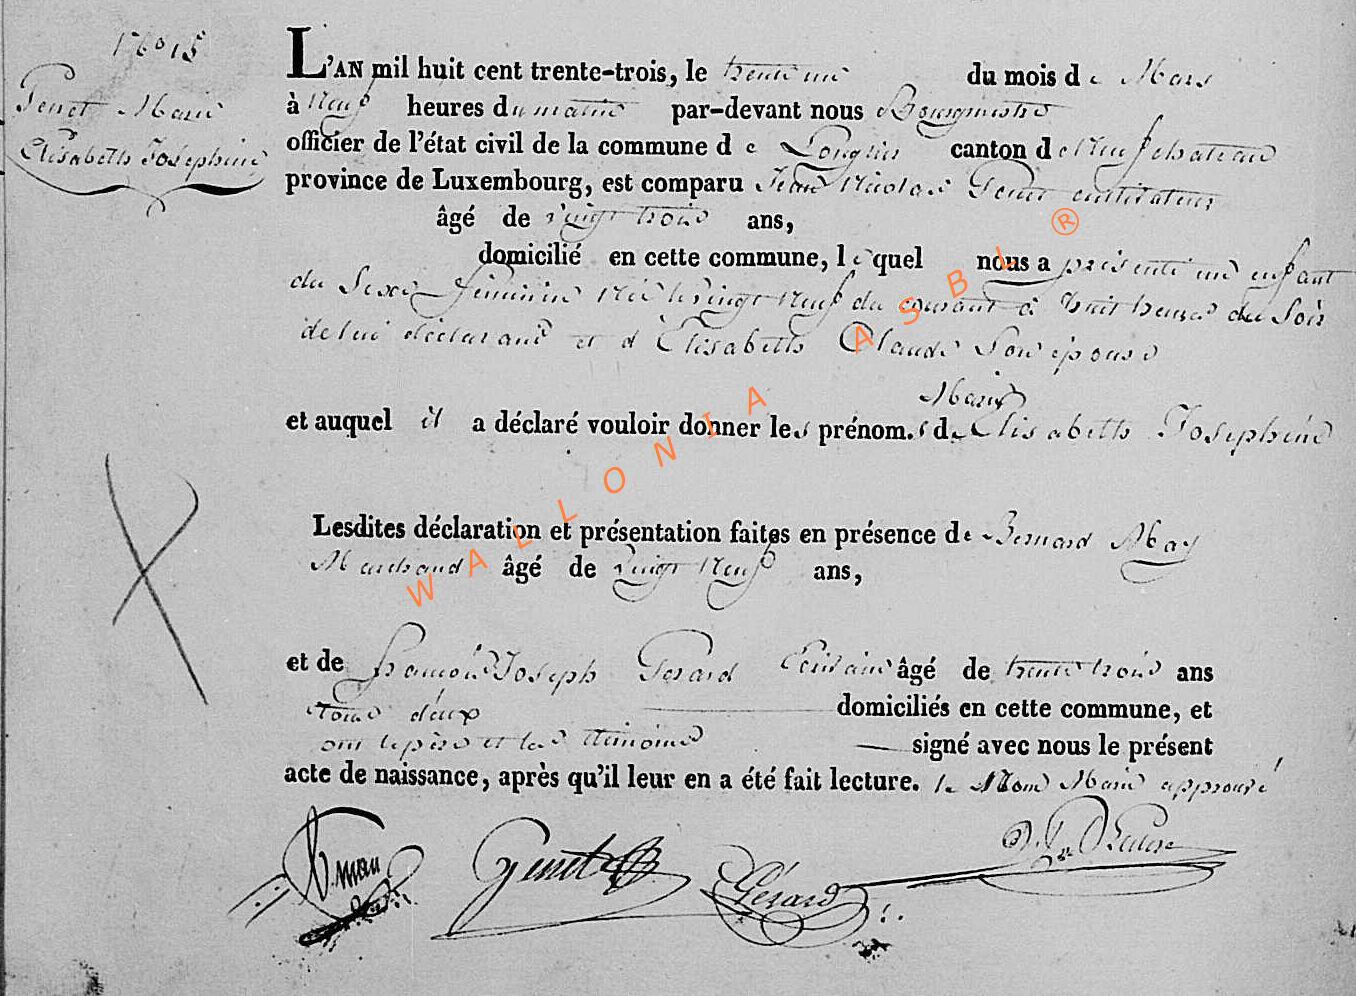 N° 15
Genet Marie
Elisabeth Josephine
L'AN mil huit cent trente-trois, le trente un du mois de Mars
à Neuf heures du matin par-devant nous Bourgmestre
officier de l'état civil de la commune de Longlier canton de Neufchateau
province de Luxembourg, est comparu Jean Nicolas Genet cultivateur
âgé de vingt trois ans,
domicilié en cette commune, lequel nous a présenté un enfant
du Sexe féminin Née le vingt Neuf du courant à huit heures du Soir
de lui déclarant et d'Elisabeth Claude Son épouse
Marie
et auquel il a déclaré vouloir donner les prénom.s de Elisabeth Josephine
Lesdites déclaration et présentation faites en présence de Bernard May
Marchand âgé de vingt Neuf ans,
et de françois Joseph Gerard âgé de trente trois ans
Tous deux domiciliés en cette commune, et
ont le père et les témoins signé avec nous le présent
acte de naissance, après qu'il leur en a été fait lecture. le Nom Marie approuvé
Genet
Gérard
WALLONIA ASBL ®